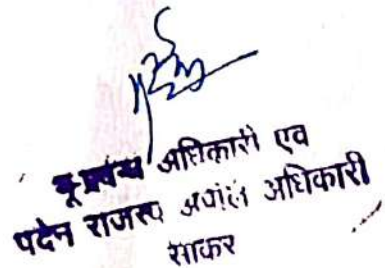 भू प्रबन्ध अधिकारी एव
पदेन राजस्व अपील अधिकारी
साकर